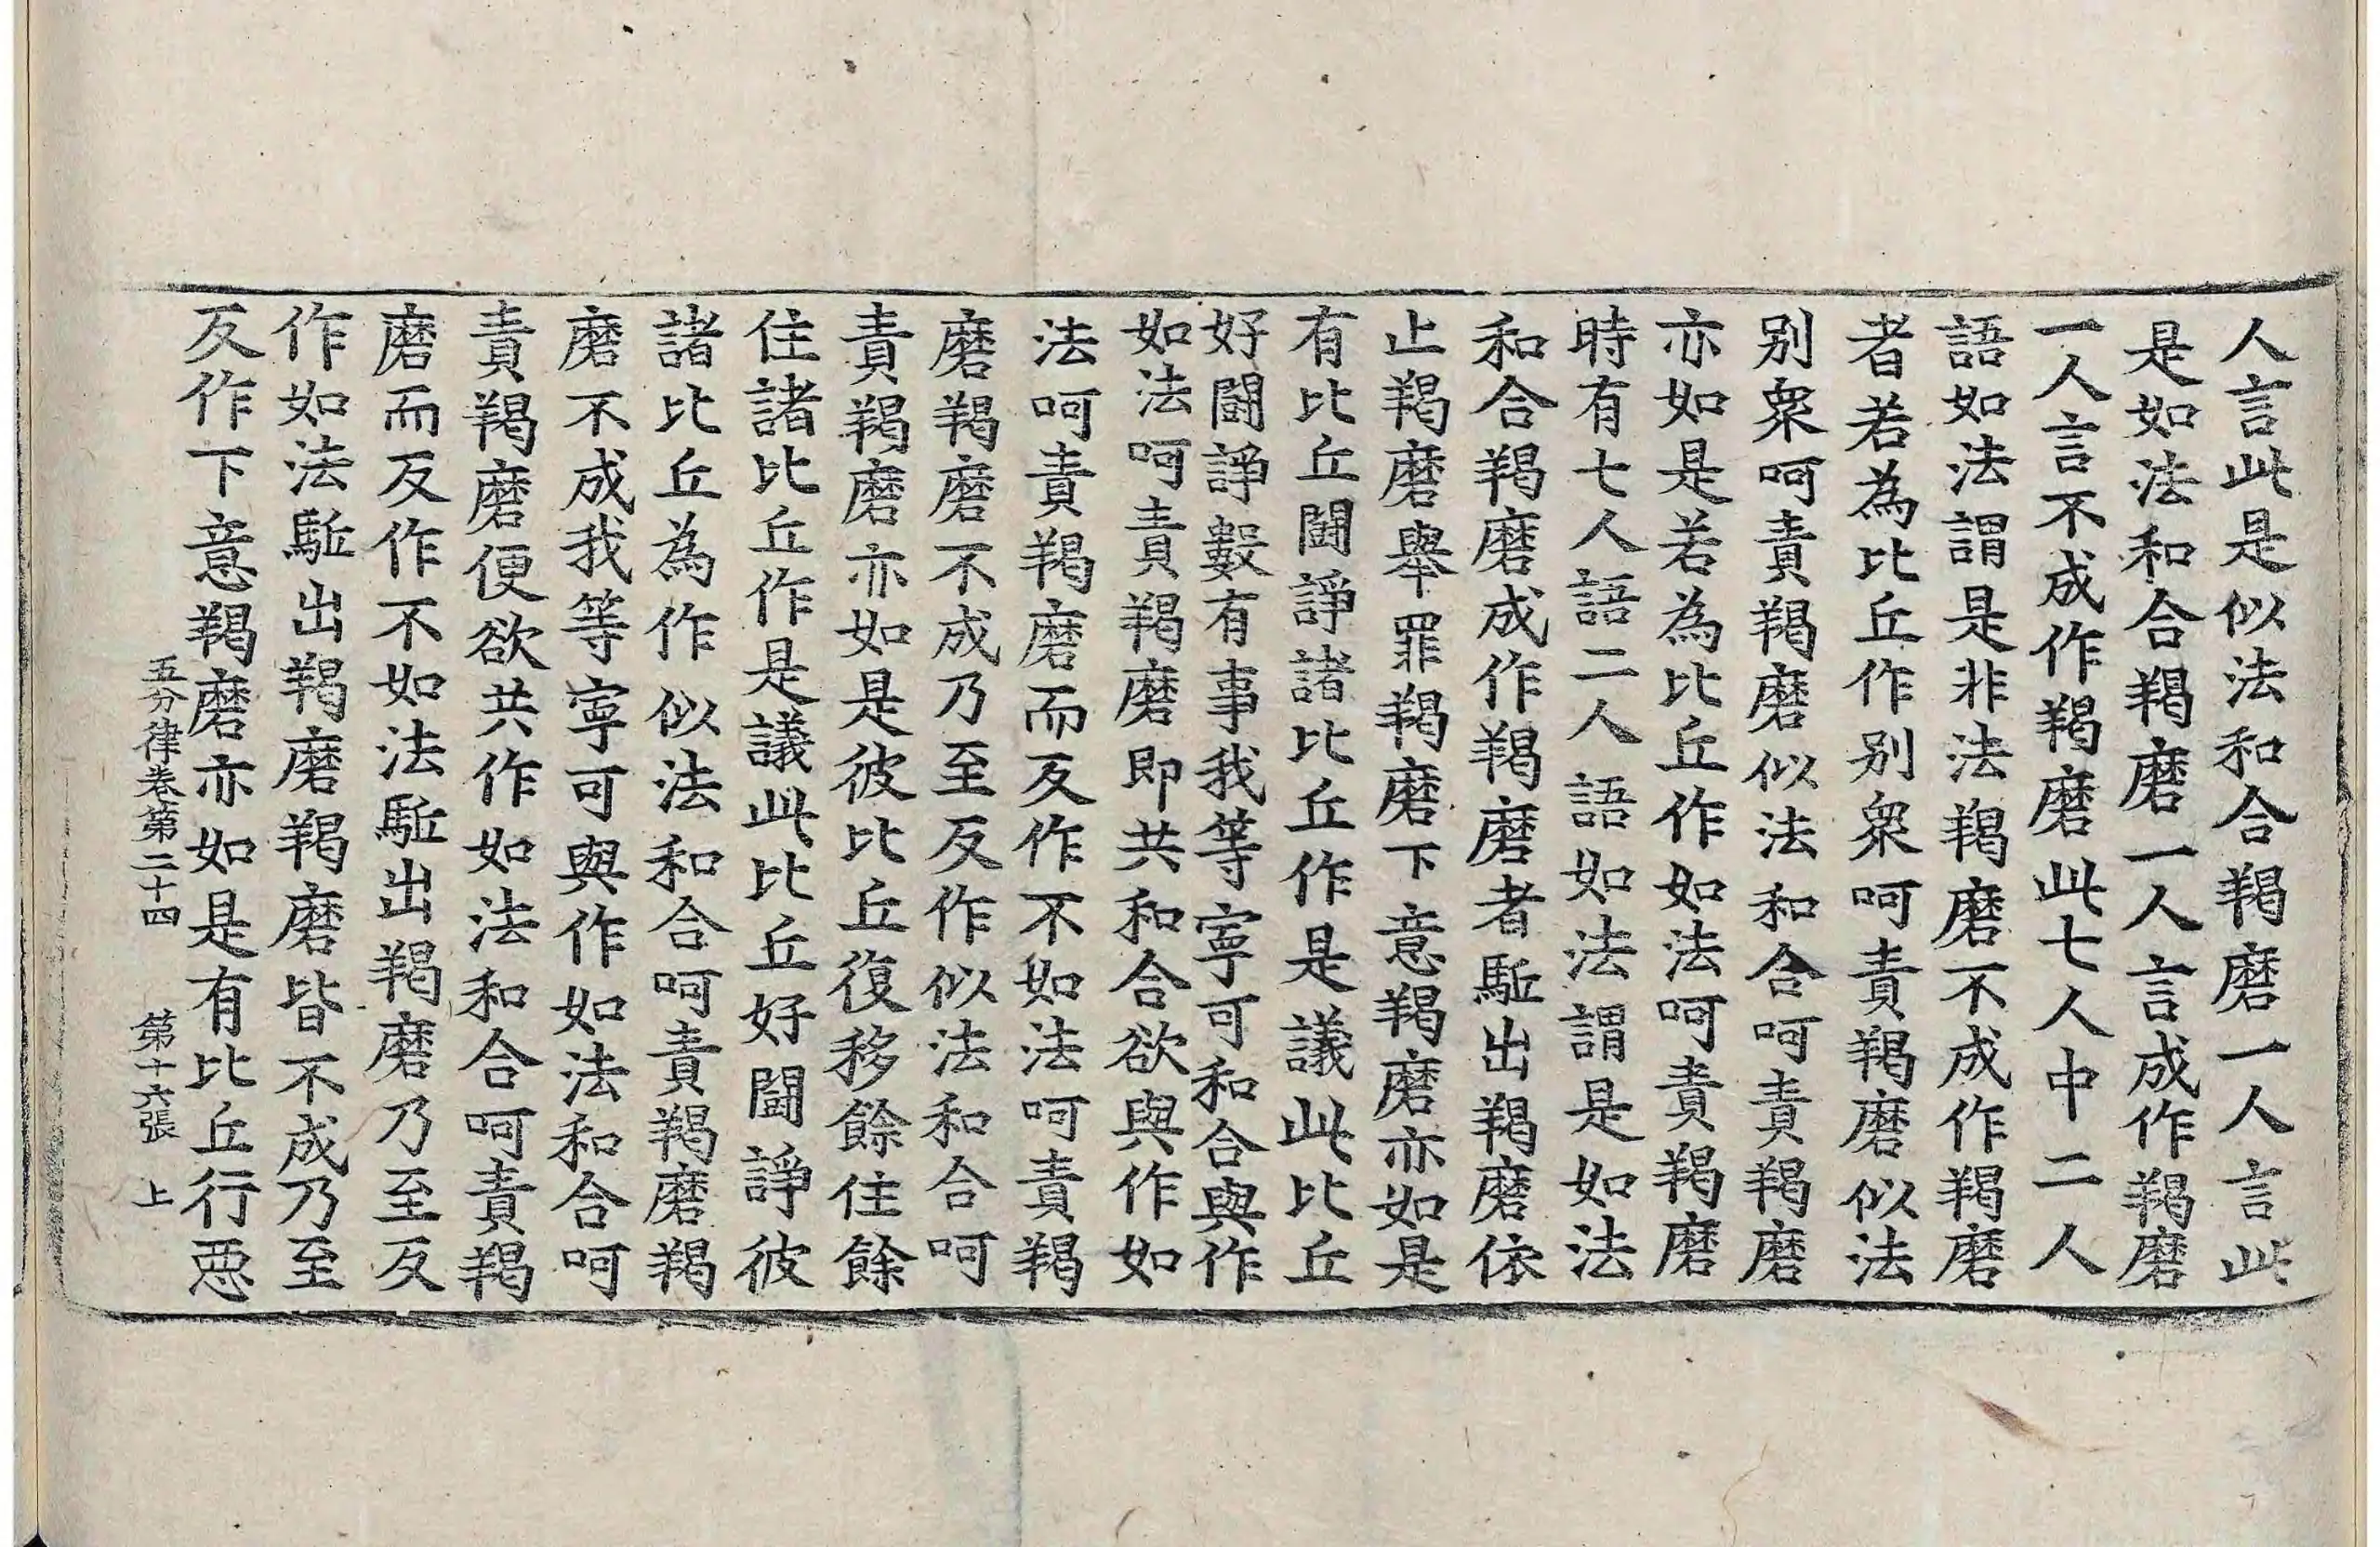 人言此是似法和合羯磨一人言此
是如法和合羯磨一人言成作羯磨
一人言不成作羯磨此七人中二人
語如法謂是非法羯磨不成作羯磨
者若為比丘作别衆呵責羯磨似法
别衆呵責羯磨似法和合呵責羯磨
亦如是若為比丘作如法呵責羯磨
時有七人語二人語如法謂是如法
和合羯磨成作羯磨者駈出羯磨依
止羯磨舉罪羯磨下意羯磨亦如是
有比丘鬪諍諸比丘作是議此比丘
好鬪諍數有事我等寧可和合與作
如法呵責羯磨即共和合欲與作如
法呵責羯磨而反作不如法呵責羯
磨羯磨不成乃至反作似法和合呵
責羯磨亦如是彼比丘復移餘住餘
住諸比丘作是議此比丘好鬪諍彼
諸比丘為作似法和合呵責羯磨羯
磨不成我等寧可與作如法和合呵
責羯磨便欲共作如法和合呵責羯
磨而反作不如法駈出羯磨乃至反
作如法駈出羯磨羯磨皆不成乃至
反作下意羯磨亦如是有比丘行惡
五分律卷第二十四 第十六張 上